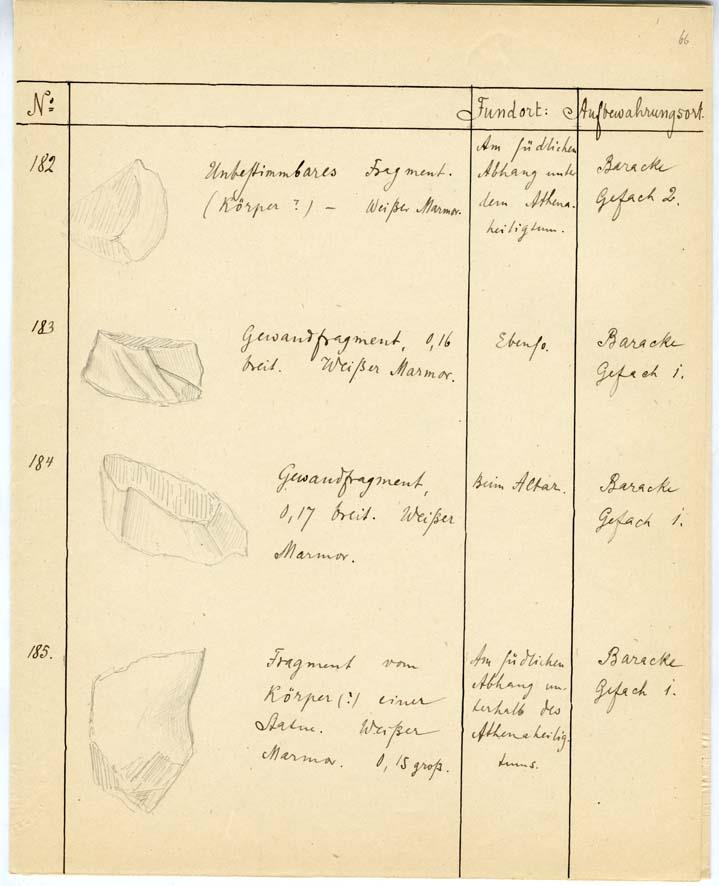 66
No: Fundort: Aufbewahrungsort.
182
Unbestimmbares Fragment.
(Körper?) — Weißer Marmor.
Am südlichen
Abhang unter
dem Athena-
heiligtum.
Baracke
Gefach 2.
183
Gewandfragment, 0,16
breit. Weißer Marmor.
Ebenso.
Baracke
Gefach 1.
184
Gewandfragment,
0,17 breit. Weißer
Marmor.
Beim Altar.
Baracke
Gefach 1.
185.
Fragment vom
Körper (?) einer
Statue. Weißer
Marmor. 0,15 groß.
Am südlichen
Abhang un-
terhalb des
Athenaheilig-
tums.
Baracke
Gefach 1.